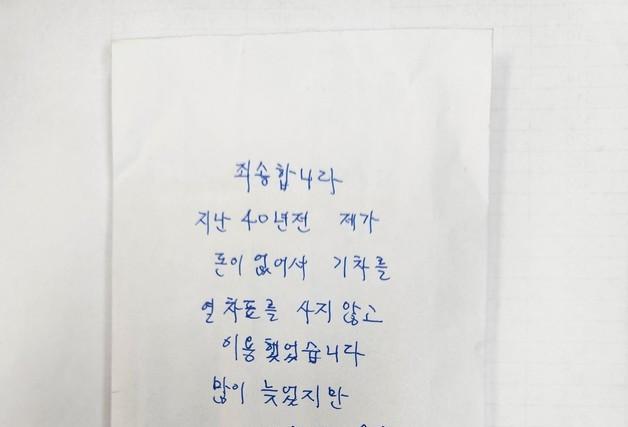 죄송합니다
지난 40년전 제가
돈이 없어서 기차를
열차표를 사지 않고
이용했었습니다
많이 늦었지만